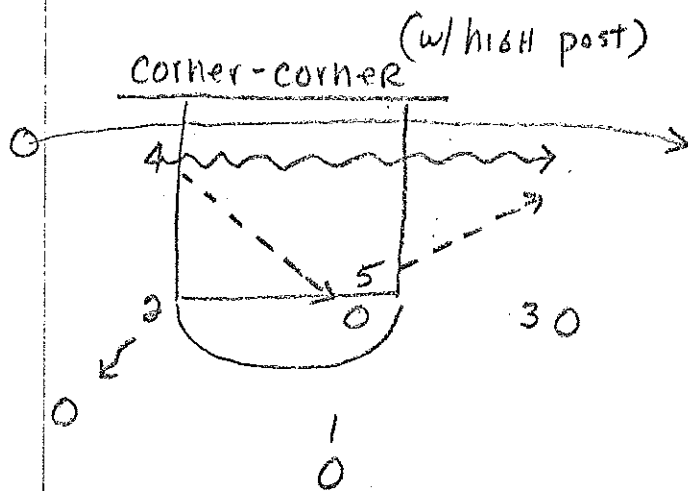 (w/ high post)
corner-corner
O
4
5
2 O 3 O
O
1
O